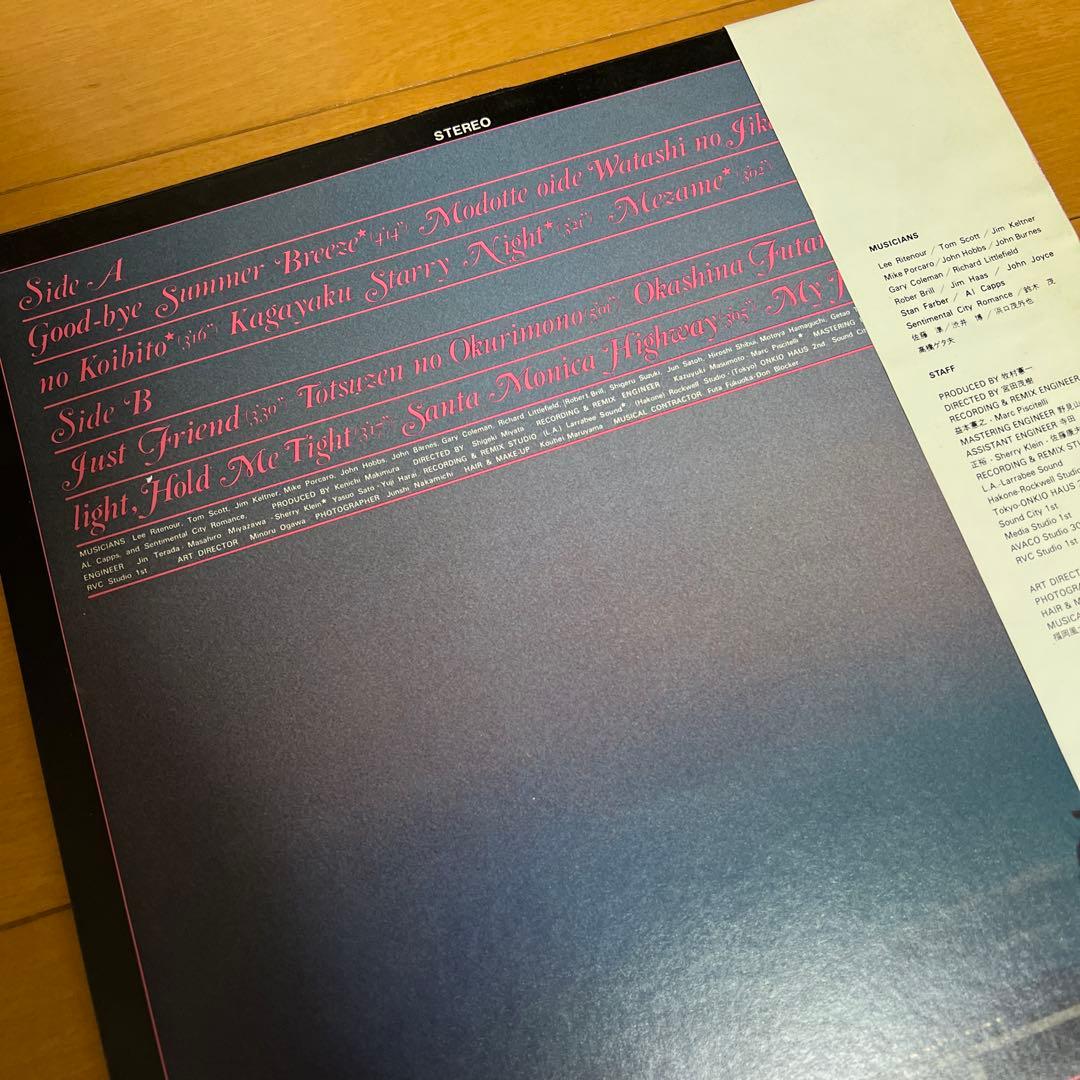 STEREO
Side A
Good-bye Summer Breeze* (4'14") Modotte oide Watashi no Jik
no Koibito* (3'16") Kagayaku Starry Night* (3'21") Mezame* (3'02")
Side B
Just Friend (3'30") Totsuzen no Okurimono (5'01") Okashina Futar
light, Hold Me Tight (3'17") Santa Monica Highway (3'05") My
MUSICIANS Lee Ritenour, Tom Scott, Jim Keltner, Mike Porcaro, John Hobbs, John Barnes, Gary Coleman, Richard Littlefield, Robert Brill, Shigeru Suzuki, Jun Satoh, Hiroshi Shibui, Motoya Hamaguchi, Getao
AL Capps, and Sentimental City Romance. PRODUCED BY Kenichi Makimura DIRECTED BY Shigeki Miyata RECORDING & REMIX ENGINEER Kazuyuki Masumoto · Marc Piscitelli* MASTERING
ENGINEER Jin Terada · Masahiro Miyazawa · Sherry Klein* Yasuo Sato · Yuji Harai RECORDING & REMIX STUDIO (L.A.) Larrabee Sound* · (Hakone) Rockwell Studio · (Tokyo) ONKIO HAUS 2nd Sound City
RVC Studio 1st ART DIRECTOR Minoru Ogawa PHOTOGRAPHER Junshi Nakamichi HAIR & MAKE-UP Kouhei Maruyama MUSICAL CONTRACTOR Futa Fukuoka · Don Blocker
MUSICIANS
Lee Ritenour / Tom Scott / Jim Keltner
Mike Porcaro / John Hobbs / John Burnes
Gary Coleman / Richard Littlefield
Rober Brill / Jim Haas / John Joyce
Stan Farber / Al Capps
Sentimental City Romance / 鈴木 茂
佐藤 準 / 渋井 博 / 浜口茂外也
高橋ゲタ夫
STAFF
PRODUCED BY 牧村憲一
DIRECTED BY 宮田茂樹
RECORDING & REMIX ENGINEER
益本憲之・Marc Piscitelli
MASTERING ENGINEER 野見山
ASSISTANT ENGINEER 寺田
正裕・Sherry Klein・佐藤康夫
RECORDING & REMIX STU
L.A.-Larrabee Sound
Hakone-Rockwell Studio
Tokyo-ONKIO HAUS 2n
Sound City 1st
Media Studio 1st
AVACO Studio 30
RVC Studio 1st
ART DIRECT
PHOTOGRA
HAIR & M
MUSICA
福岡風